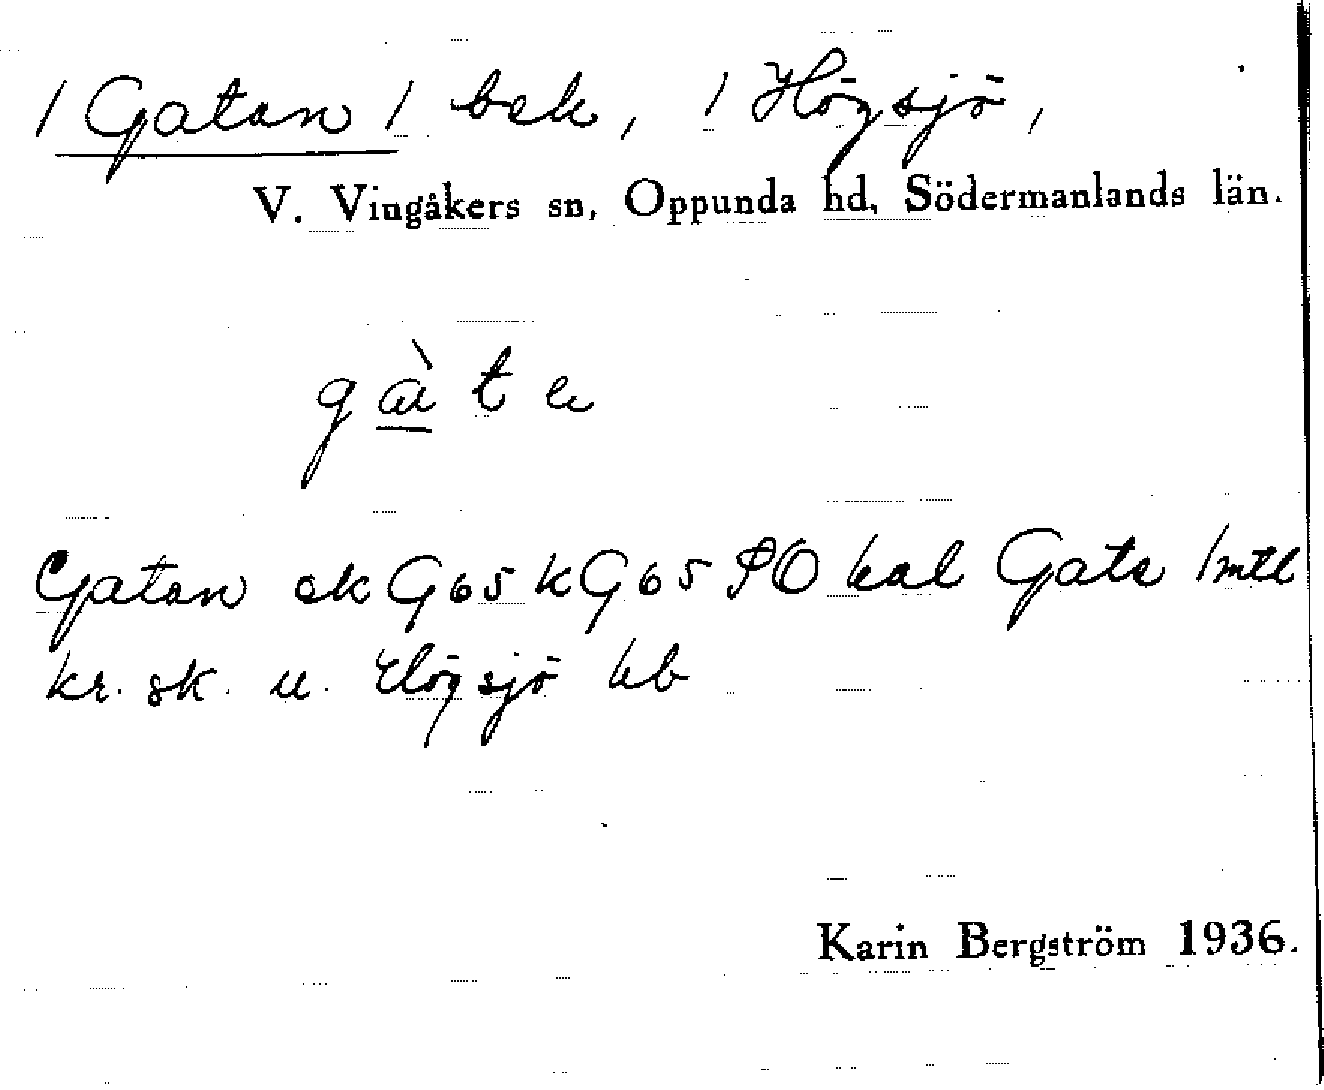 / Gatan / bek, / Högsjö,
V. Vingåkers sn, Oppunda hd, Södermanlands län.
gàt
Gatan ek G65 k G65 PO kal Gata 1 mtl
kr. sk. u. Högsjö hb
Karin Bergström 1936.